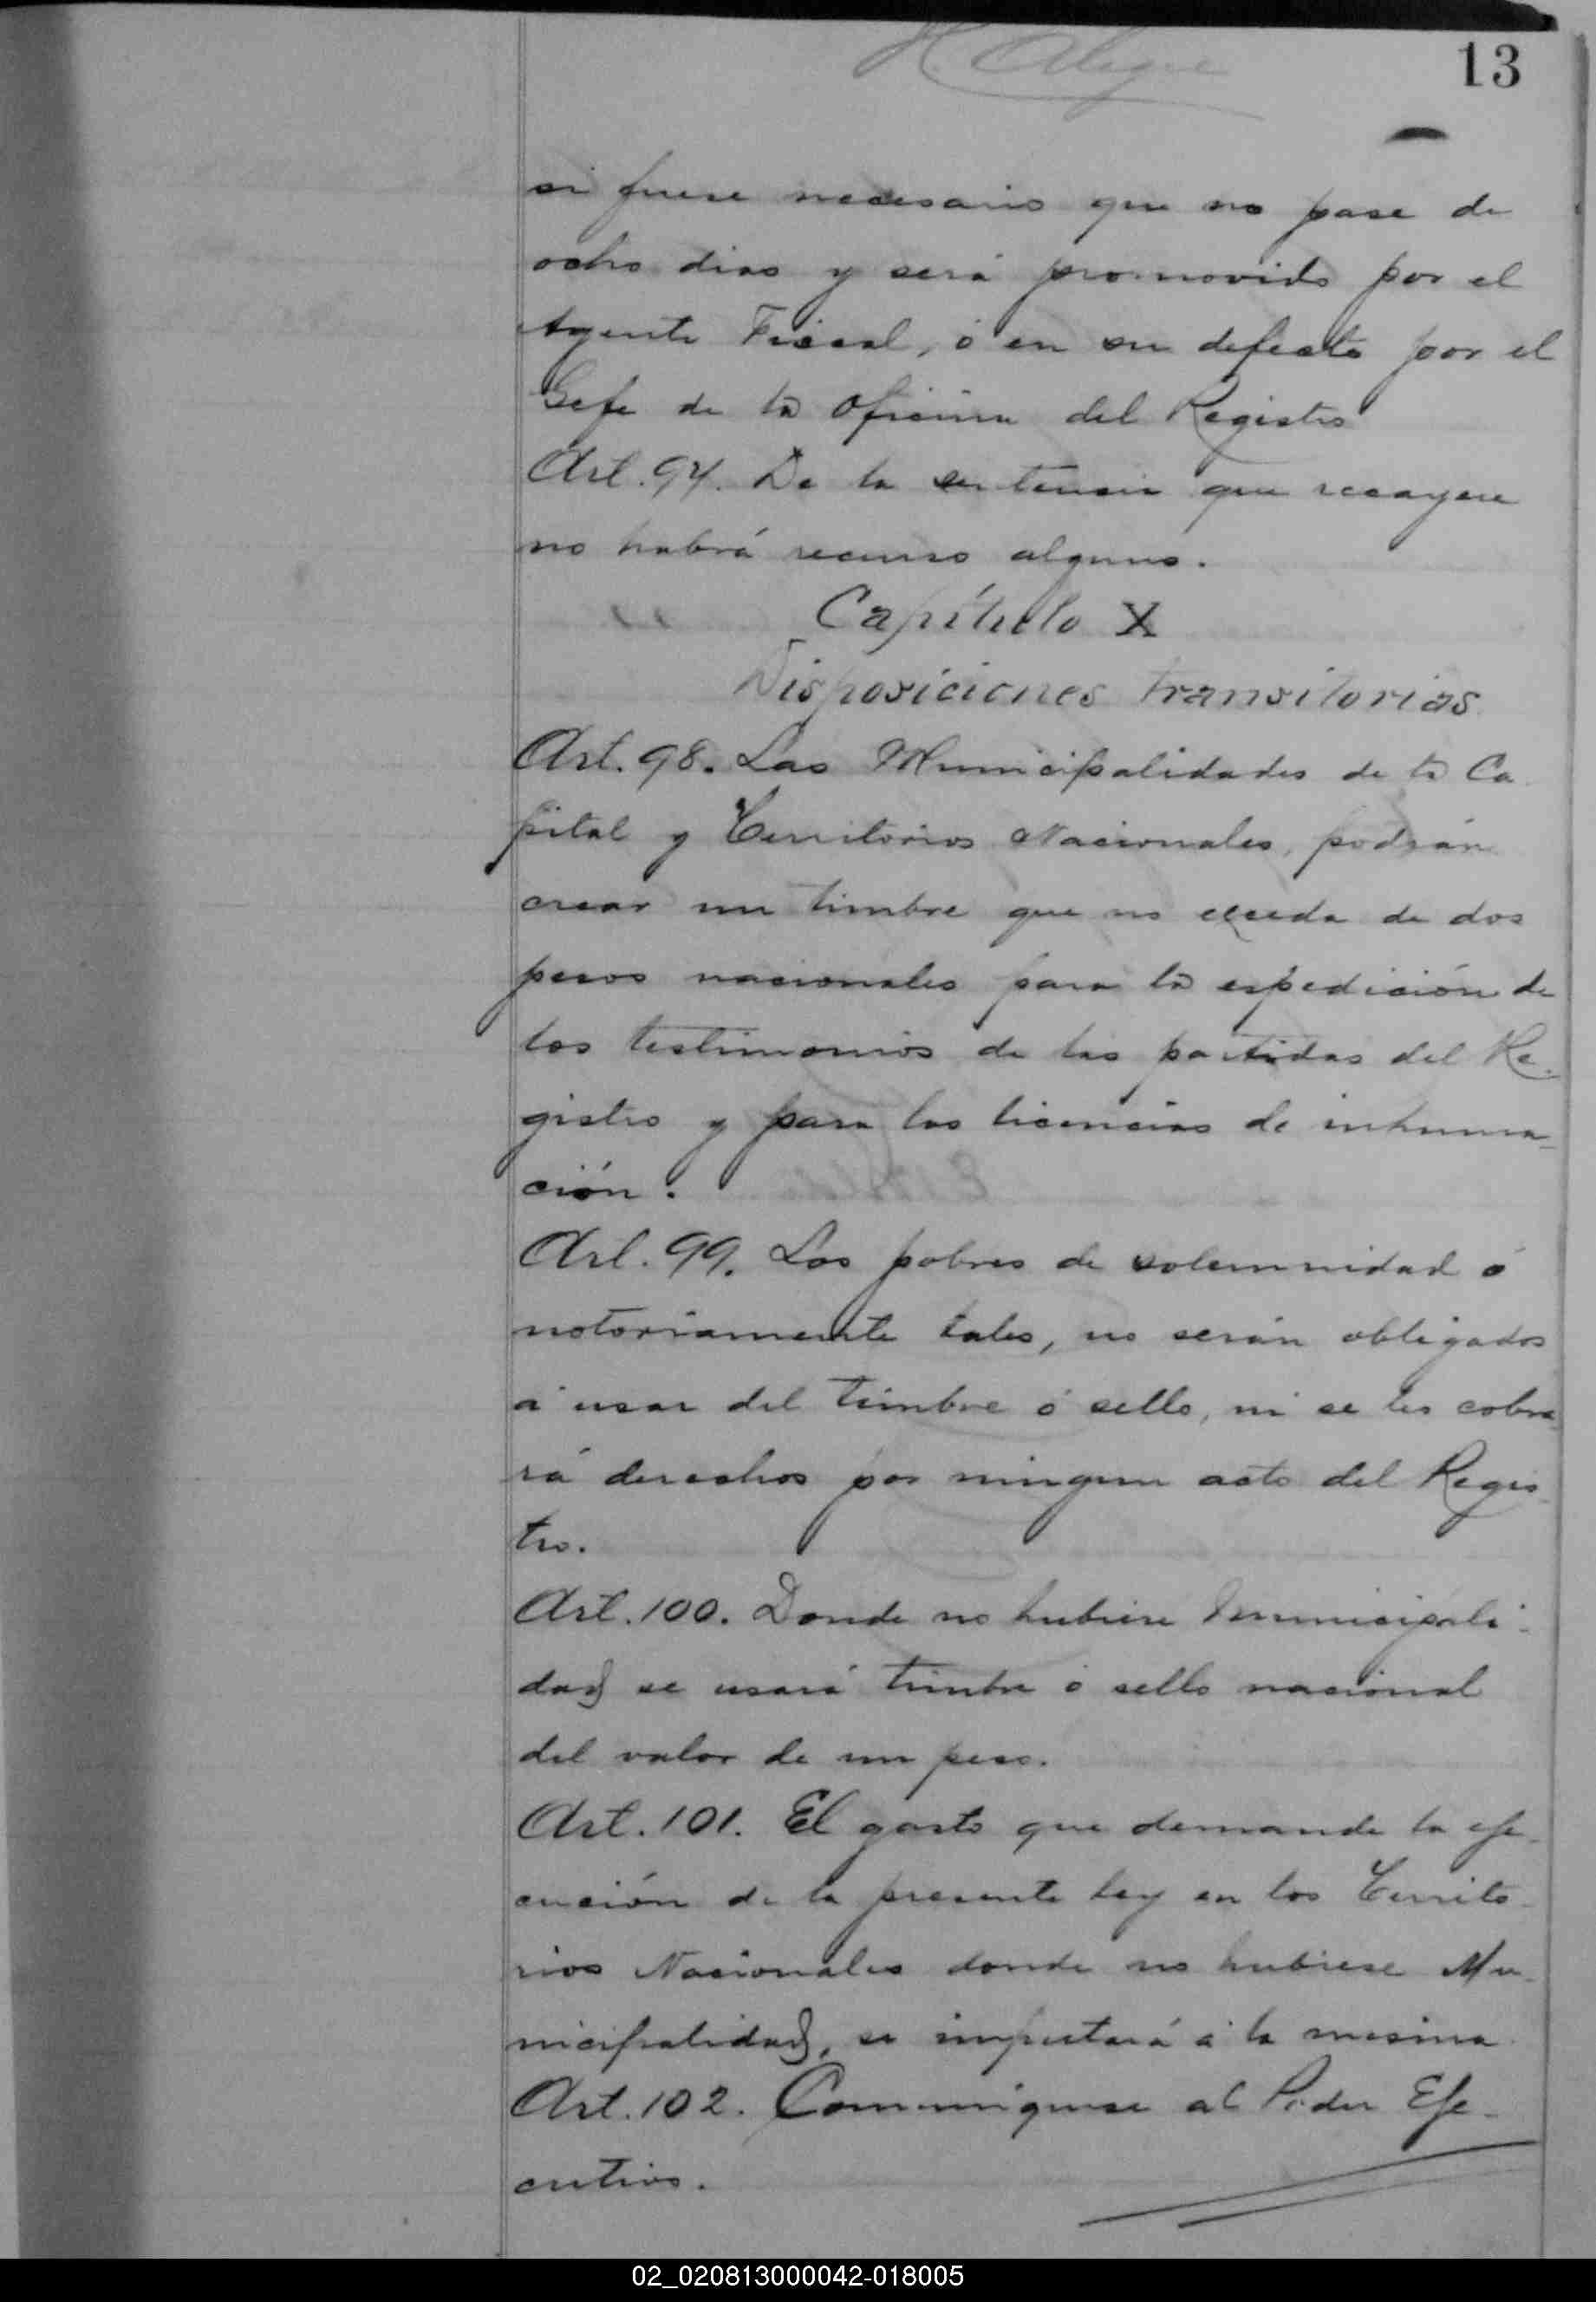 13
si fuese necesario que no pase de
ocho dias y será promovido por el
Agente Fiscal, ó en su defecto por el
Gefe de la Oficina del Registro
Art. 97. De la sentencia que recayere
no habrá recurso alguno.
Capítulo X
Disposiciones transitorias
Art. 98. Las Municipalidades de la Ca
pital y Territorios Nacionales, podrán
crear un timbre que no exceda de dos
pesos nacionales para la espedición de
los testimonios de las partidas del Re-
gistro y para las licencias de inhuma-
ción.
Art. 99. Los pobres de solemnidad ó
notoriamente tales, no serán obligados
á usar del timbre ó sello, ni se les cobra-
rá derechos por ningun acto del Regis-
tro.
Art. 100. Donde no hubiere Municipali-
dad se usará timbre ó sello nacional
del valor de un peso.
Art. 101. El gasto que demande la eje-
cución de la presente ley en los Territo-
rios Nacionales donde no hubiese Mu-
nicipalidad, se imputará á la mesima
Art. 102. Comuníquese al Poder Eje-
cutivo.
02_020813000042-018005